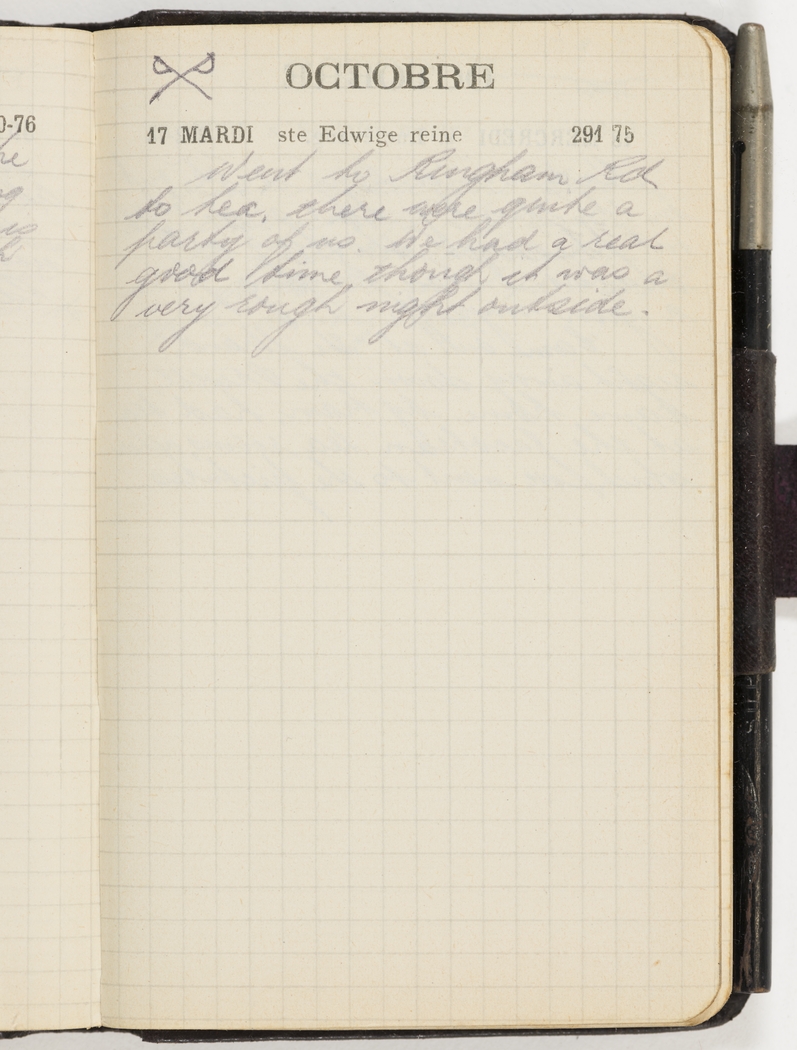 0-76
OCTOBRE
17 MARDI ste Edwige reine 291 75
Went to Ringham Rd
to tea, there were quite a
party of us. We had a real
good time, though it was a
very rough night outside.